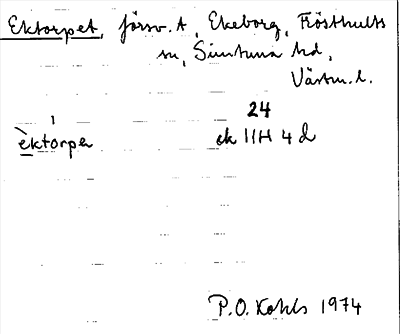 Ektorpet, försv. t, Ekeborg, Frösthults
sn, Simtuna hd,
Västm. l.
24
èktórpa
ek 11H 4d
P.O. Kohls 1974